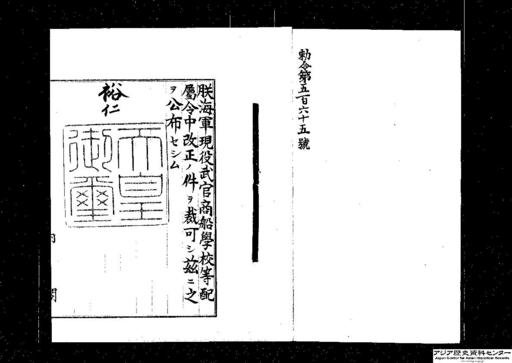 勅令第五百六十五號
朕海軍現役武官商船學校等配
屬令中改正ノ件ヲ裁可シ茲ニ之
ヲ公布セシム
裕仁
天皇
御璽
アジア歴史資料センター
Japan Center for Asian Historical Records